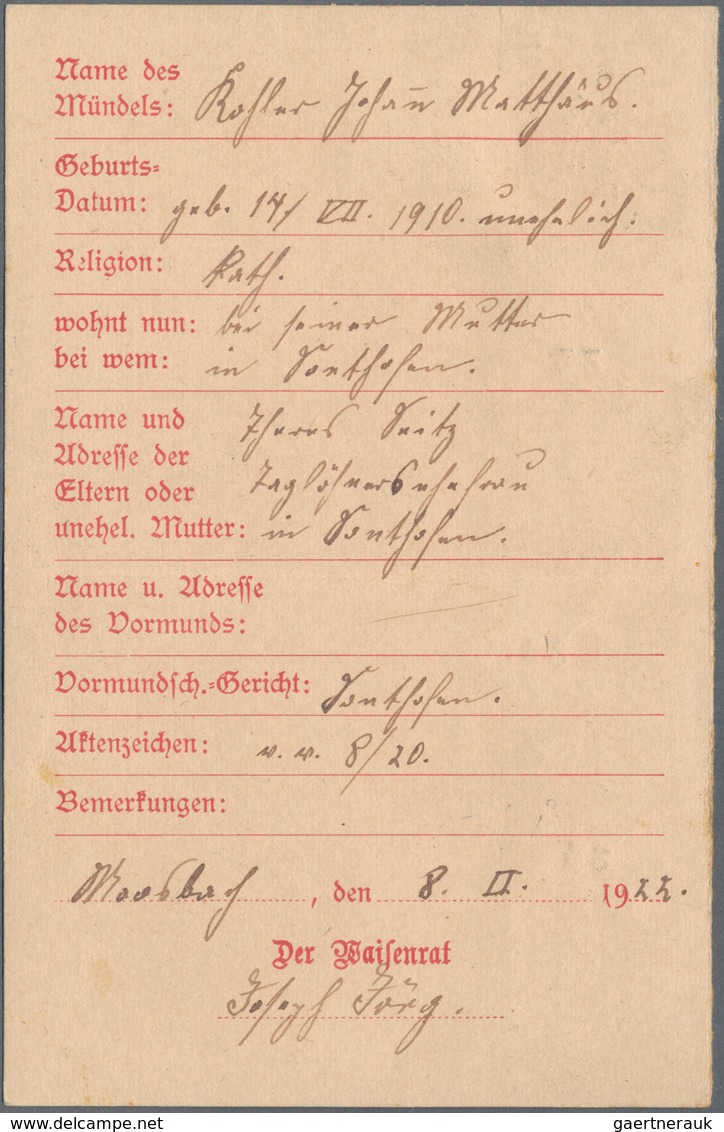 Name des
Mündels: Kohler Johann Matthäus.
Geburts=
Datum: geb. 14/ VII. 1910. unehelich.
Religion: kath.
wohnt nun: bei seiner Mutter
bei wem: in Sonthofen.
Name und Theres Seitz
Adresse der
Eltern oder Taglöhnersehefrau
unehel. Mutter: in Sonthofen.
Name u. Adresse
des Vormunds:
Vormundsch.=Gericht: Sonthofen.
Aktenzeichen: v. v. 8/20.
Bemerkungen:
Moosbach, den 8. II. 1922.
Der Waisenrat
Joseph Jörg.
gaertnerauk